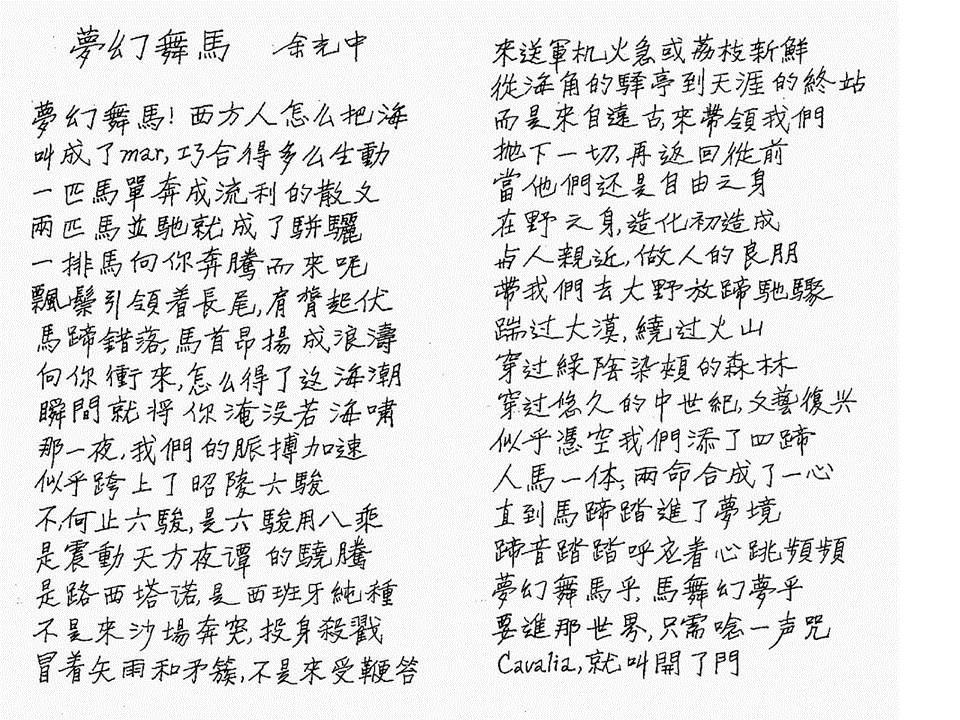 夢幻舞馬 余光中
夢幻舞馬！西方人怎么把海
叫成了mar, 巧合得多么生動
一匹馬單奔成流利的散文
兩匹馬並馳就成了駢驪
一排馬向你奔騰而來呢
飄鬃引領着長尾, 肩臀起伏
馬蹄錯落, 馬首昂揚成浪濤
向你衝來, 怎么得了这海潮
瞬間就將你淹没若海嘯
那一夜, 我們的脈搏加速
似乎跨上了昭陵六駿
不, 何止六駿, 是六駿用八乘
是震動天方夜谭的驍騰
是路西塔诺, 是西班牙純種
不是來沙場奔突, 投身殺戳
冒着矢雨和矛簇, 不是來受鞭笞
來送軍机火急或荔枝新鮮
從海角的驛亭到天涯的終站
而是來自遠古, 來帶領我們
抛下一切, 再返回從前
當他們还是自由之身
在野之身, 造化初造成
与人親近, 做人的良朋
帶我們去大野放蹄馳驟
踹过大漠, 繞过火山
穿过綠陰染頰的森林
穿过悠久的中世紀, 文藝復兴
似乎憑空我們添了四蹄
人馬一体, 兩命合成了一心
直到馬蹄踏進了夢境
蹄音踏踏呼应着心跳頻頻
夢幻舞馬乎, 馬舞幻夢乎
要進那世界, 只需唸一声咒
Cavalia, 就叫開了門